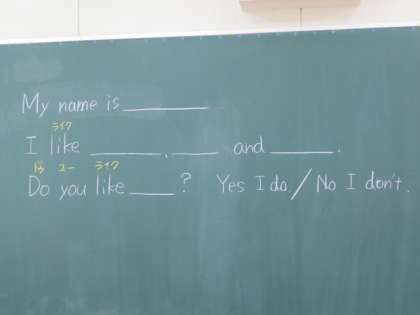 My name is ______
ライク
I like ______, ____ and _____.
ドゥ ユー ライク
Do you like ____? Yes I do / No I don't.